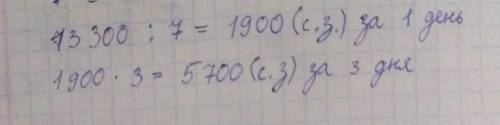 13 300 : 7 = 1900 (с.з.) за 1 день
1900 · 3 = 5700 (с.з) за 3 дня